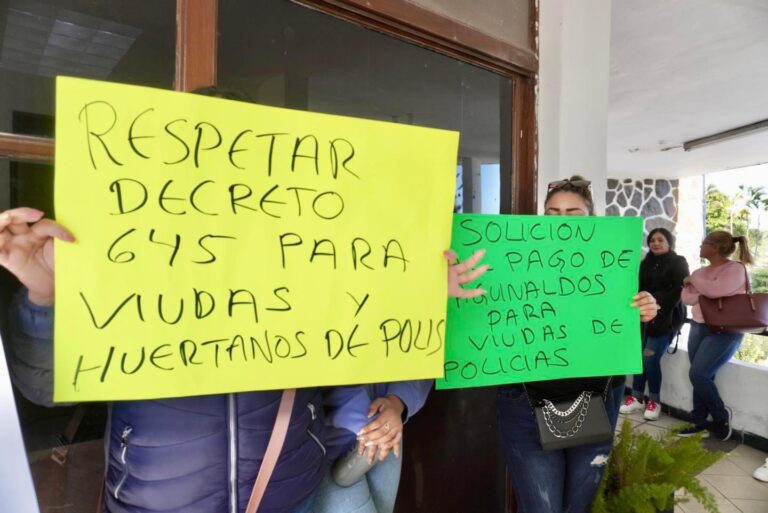 RESPETAR
DECRETO
645 PARA
VIUDAS Y
HUERTANOS DE POLIS
SOLUCIÓN
PAGO DE
AGUNALDOS
PARA
VIUDAS DE
POLICIAS